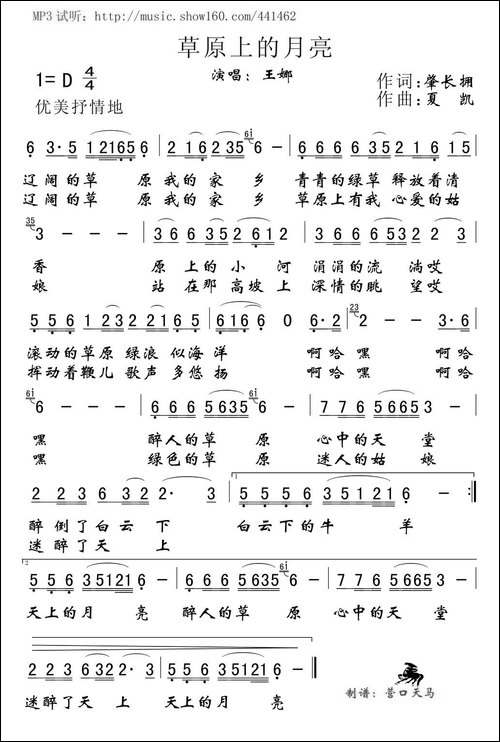 MP3试听: http://music.show160.com/441462
草原上的月亮
1=D 4/4
演唱：王娜
作词：肇长拥
优美抒情地
作曲：夏 凯
6 3·5 12165 | 2162 35 6 - | 6 6 6 6 3 5 2 1 6 15 |
辽阔的草 原我的家 乡 青青的绿草 释放着清
辽阔的草 原我的家 乡 草原上有我 心爱的姑
3 - - - | 3 6 6 3 5 2 612 | 3 6 6 5 3 3·6 |
香 原上的小 河 涓涓的流 淌哎
娘 站在那高坡上 深情的眺 望哎
5 5 6 1 23 2 21 65 | 6 16 6 0 6·2 | 2 - - 3·6 |
滚动的草原 绿浪 似海 洋 啊哈嘿 啊哈
挥动着鞭儿 歌声 多悠 扬 啊哈嘿 啊哈
6 - - - | 6 6 6 5635 6 - | 7 7 6 5665 3 - |
嘿 醉人的草 原 心中的天 堂
嘿 绿色的草 原 迷人的姑 娘
2 2 3 6 32 2· 3 | 5 5 5 6 35121 6 - :|
醉倒了白云下 白云下的牛 羊
迷醉了天 上
5 5 6 35121 6 - | 6 6 6 5635 6 - | 7 7 6 5665 3 - |
天上的月 亮 醉人的草 原 心中的天 堂
2 2 3 6 32 2· 3 | 5 5 6 35121 6 - ‖
迷醉了天 上 天上的月 亮
制谱：营口天马